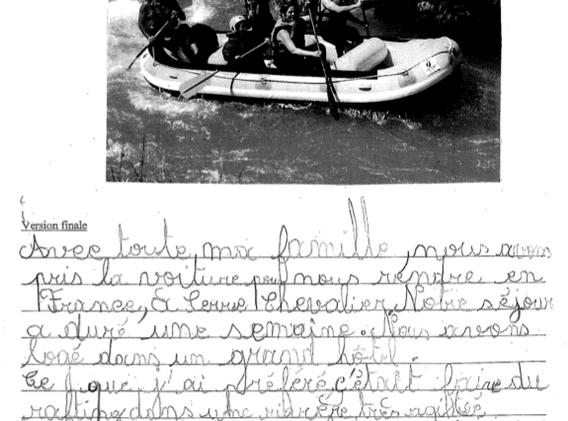 Version finale
Avec toute ma famille, nous avons
pris la voiture pour nous rendre en
France, à Serre Chevalier. Notre séjour
a duré une semaine. Nous avons
logé dans un grand hôtel.
Ce que j'ai préféré, c'était faire du
rafting dans une rivière très agitée